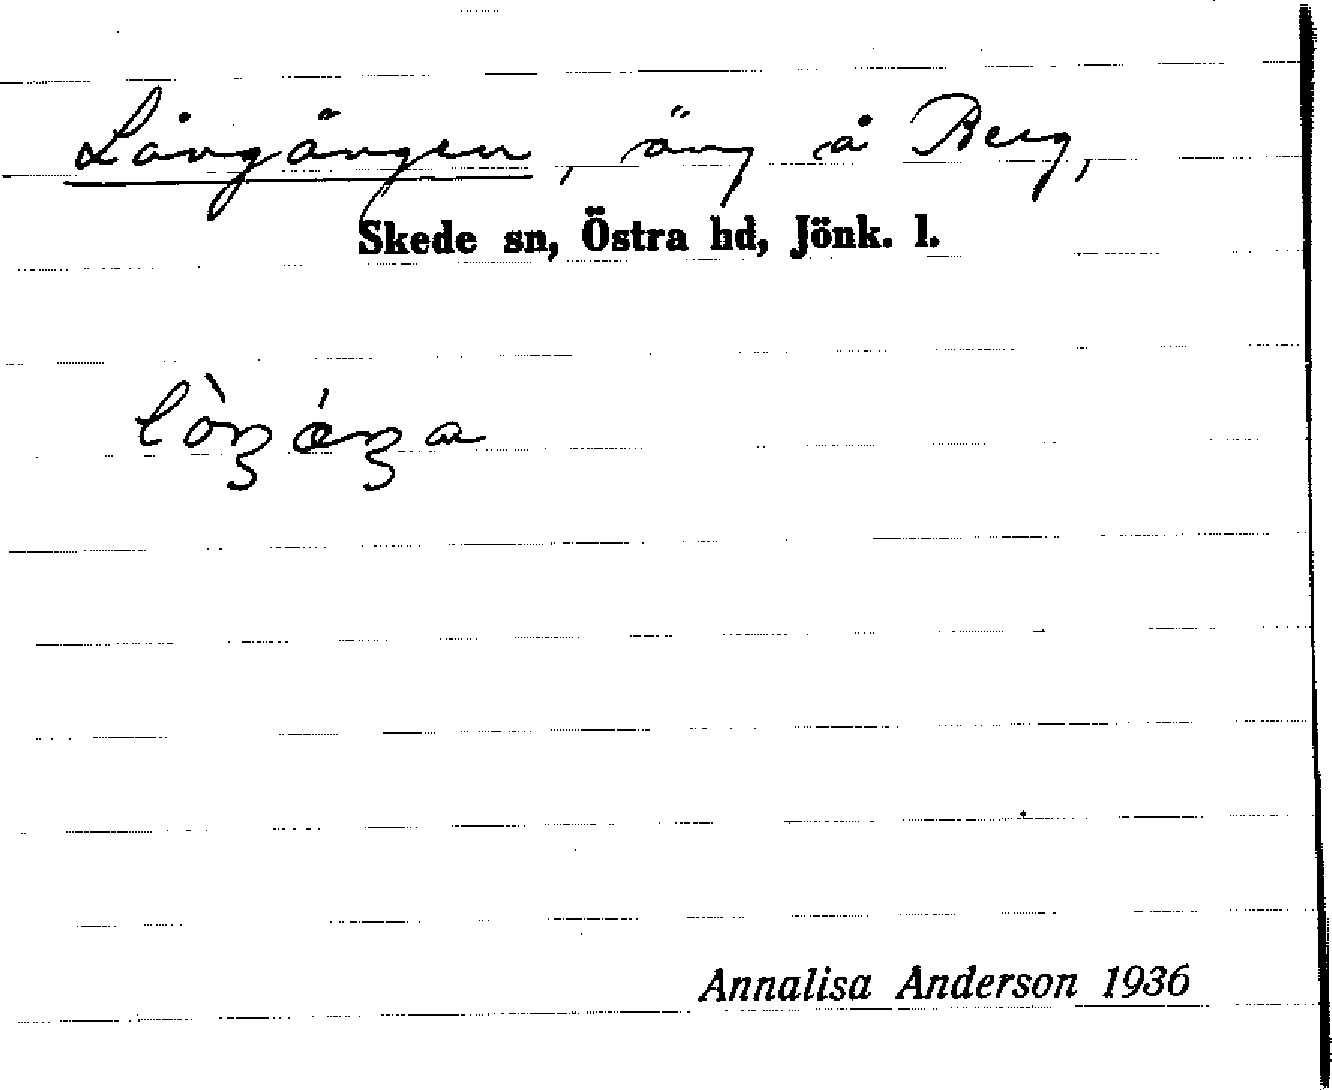 Långängen, äng å Berg,
Skede sn, Östra hd, Jönk. l.
lòŋǽŋa
Annalisa Anderson 1936